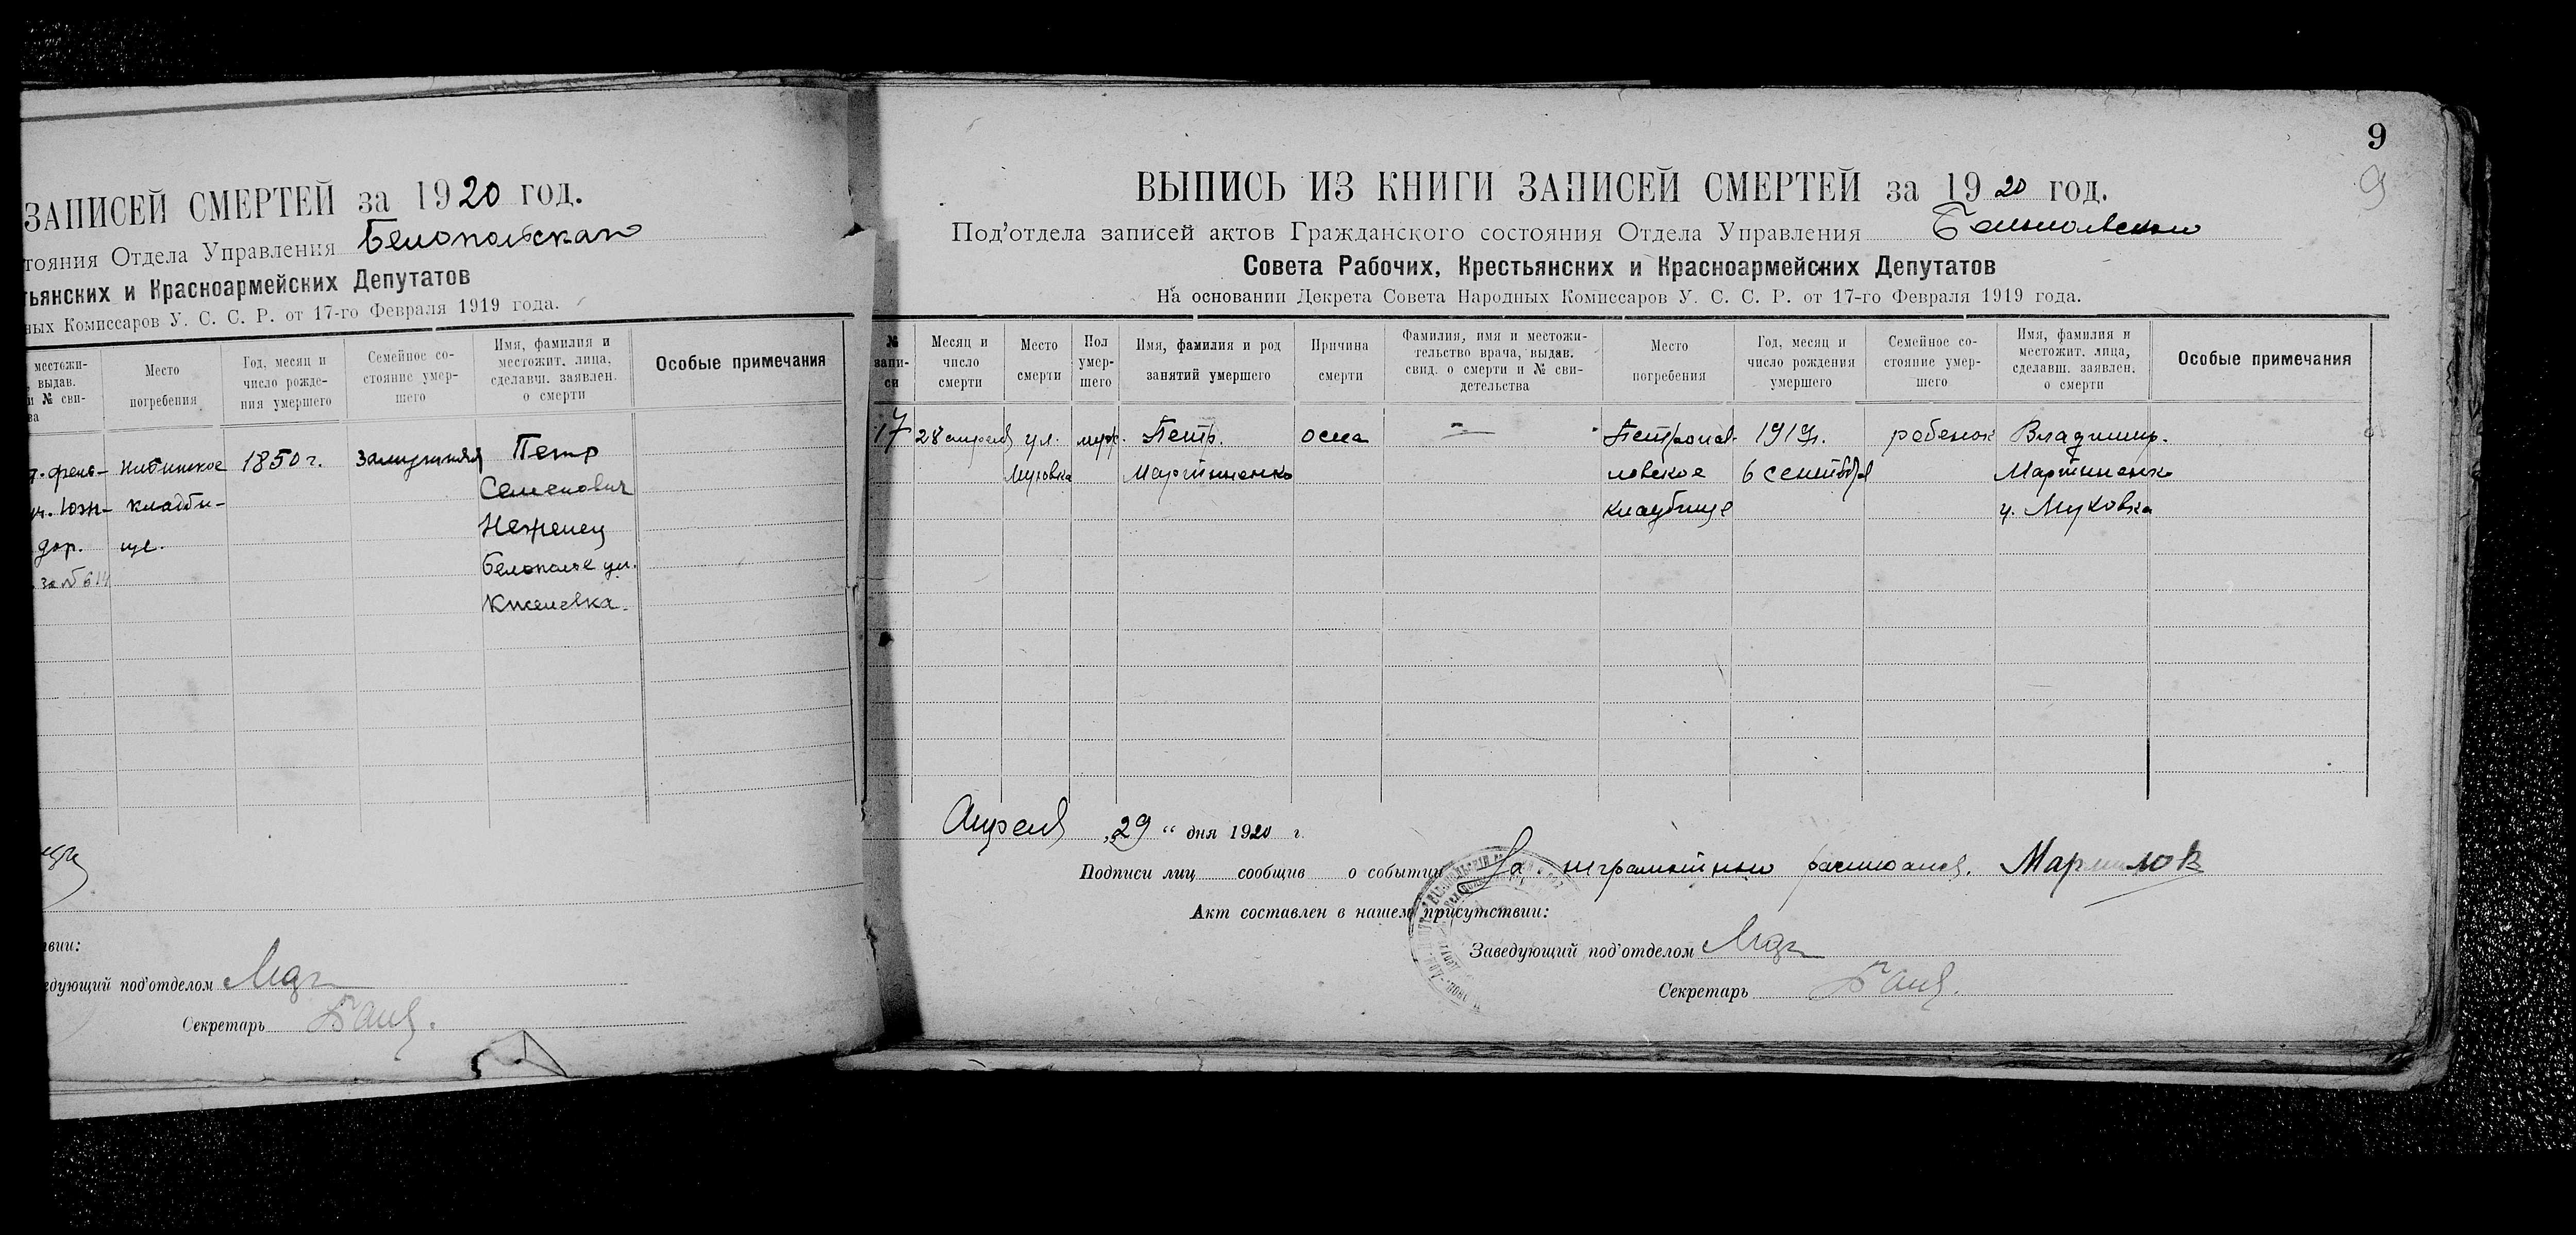 ЗАПИСЕЙ СМЕРТЕЙ за 1920 год.
тояния Отдела Управления Белопольскаго
тьянских и Красноармейских Депутатов
ных Комиссаров У. С. С. Р. от 17-го Февраля 1919 года.
местожи-
выдав.
и № сви-
ва
Место
погребения
Год, месяц и
число рожде-
ния умершего
Семейное со-
стояние умер-
шего
Имя, фамилия и
местожит. лица,
сделавш. заявлен.
о смерти
Особые примечания
1850 г. замужняя Петр
Семенович
кладби- Неженец
дор. ще. Белополье ул.
Киселевка.
твии:
едующий под'отделом
Секретарь
9
9
ВЫПИСЬ ИЗ КНИГИ ЗАПИСЕЙ СМЕРТЕЙ за 1920 год.
Под'отдела записей актов Гражданского состояния Отдела Управления Белопольскаго
Совета Рабочих, Крестьянских и Красноармейских Депутатов
На основании Декрета Совета Народных Комиссаров У. С. С. Р. от 17-го Февраля 1919 года.
№
запи-
си
Месяц и
число
смерти
Место
смерти
Пол
умер-
шего
Имя, фамилия и род
занятий умершего
Причина
смерти
Фамилия, имя и местожи-
тельство врача, выдав.
свид. о смерти и № сви-
детельства
Место
погребения
Год, месяц и
число рождения
умершего
Семейное со-
стояние умер-
шего
Имя, фамилия и
местожит. лица,
сделавш. заявлен.
о смерти
Особые примечания
17 28 апреля ул. муж. Петр. оспа — Петропав- 1919г. ребенок Владимир.
Муховка Мартиненко ловское 6 сентября Мартиненко
кладбище у. Муховка
Апреля „29“ дня 1920 г.
Подписи лиц сообщив о событии За неграмотного
Акт составлен в нашем присутствии:
Заведующий под'отделом
Секретарь